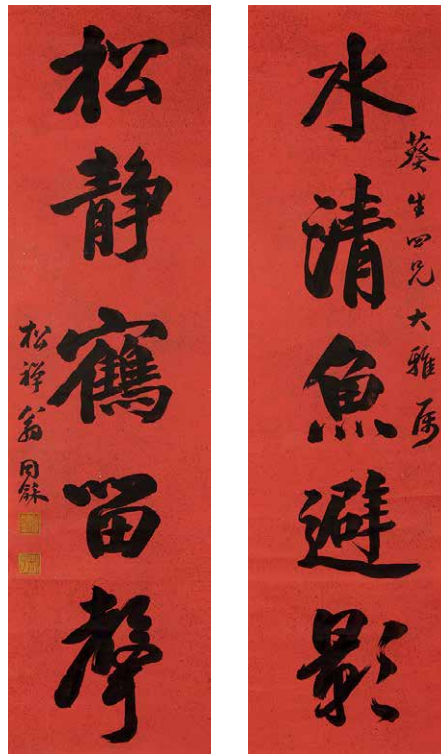 水清魚避影
葵生四兄大雅属
松静鶴留聲
松禅翁同龢